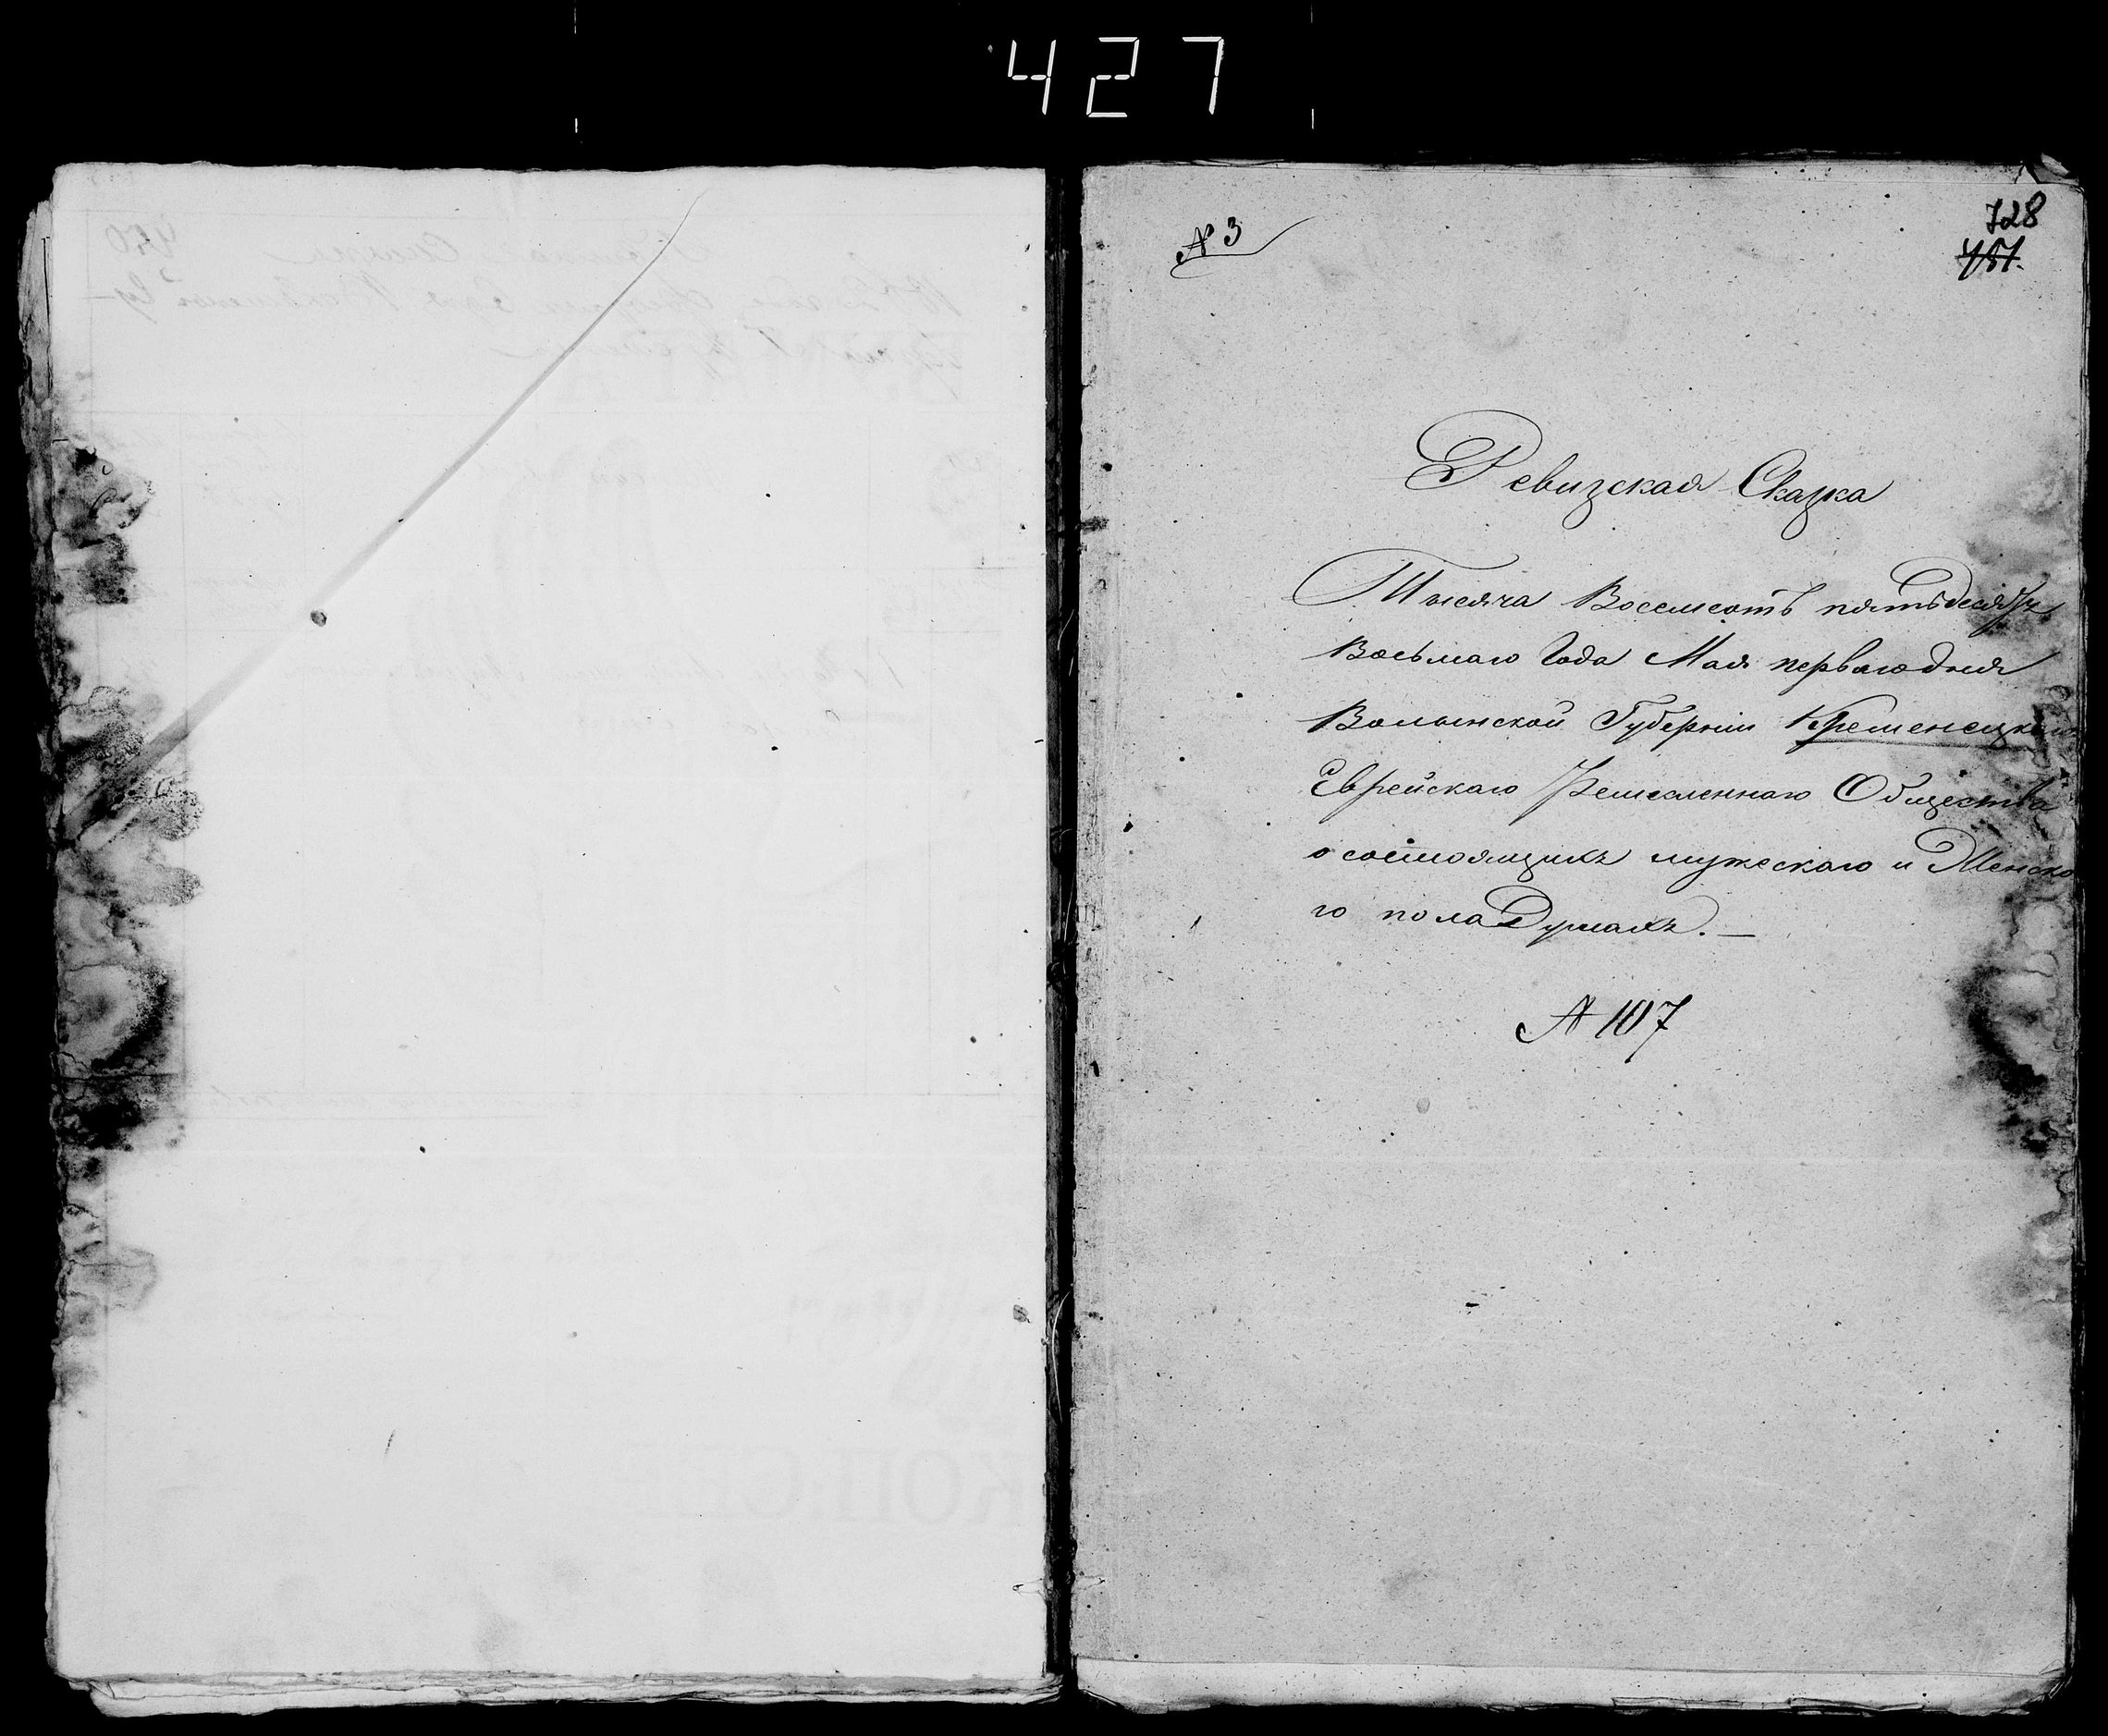 427
№ 3
728
451.
Ревизская Сказка
Тысяча Восемсотъ пятьдесятъ
Восьмаго Года Мая перваго дня
Волынской Губерніи Кременецкаго
Еврейскаго Ремесленнаго Общества
о состоящихъ мужескаго и Женска
го пола Душахъ. —
№ 107